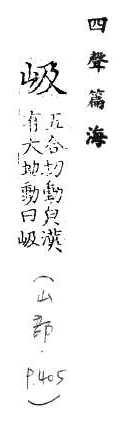 四聲篇海
岋
五合切動皃漢
有大地動曰岋
(山部·P.405)